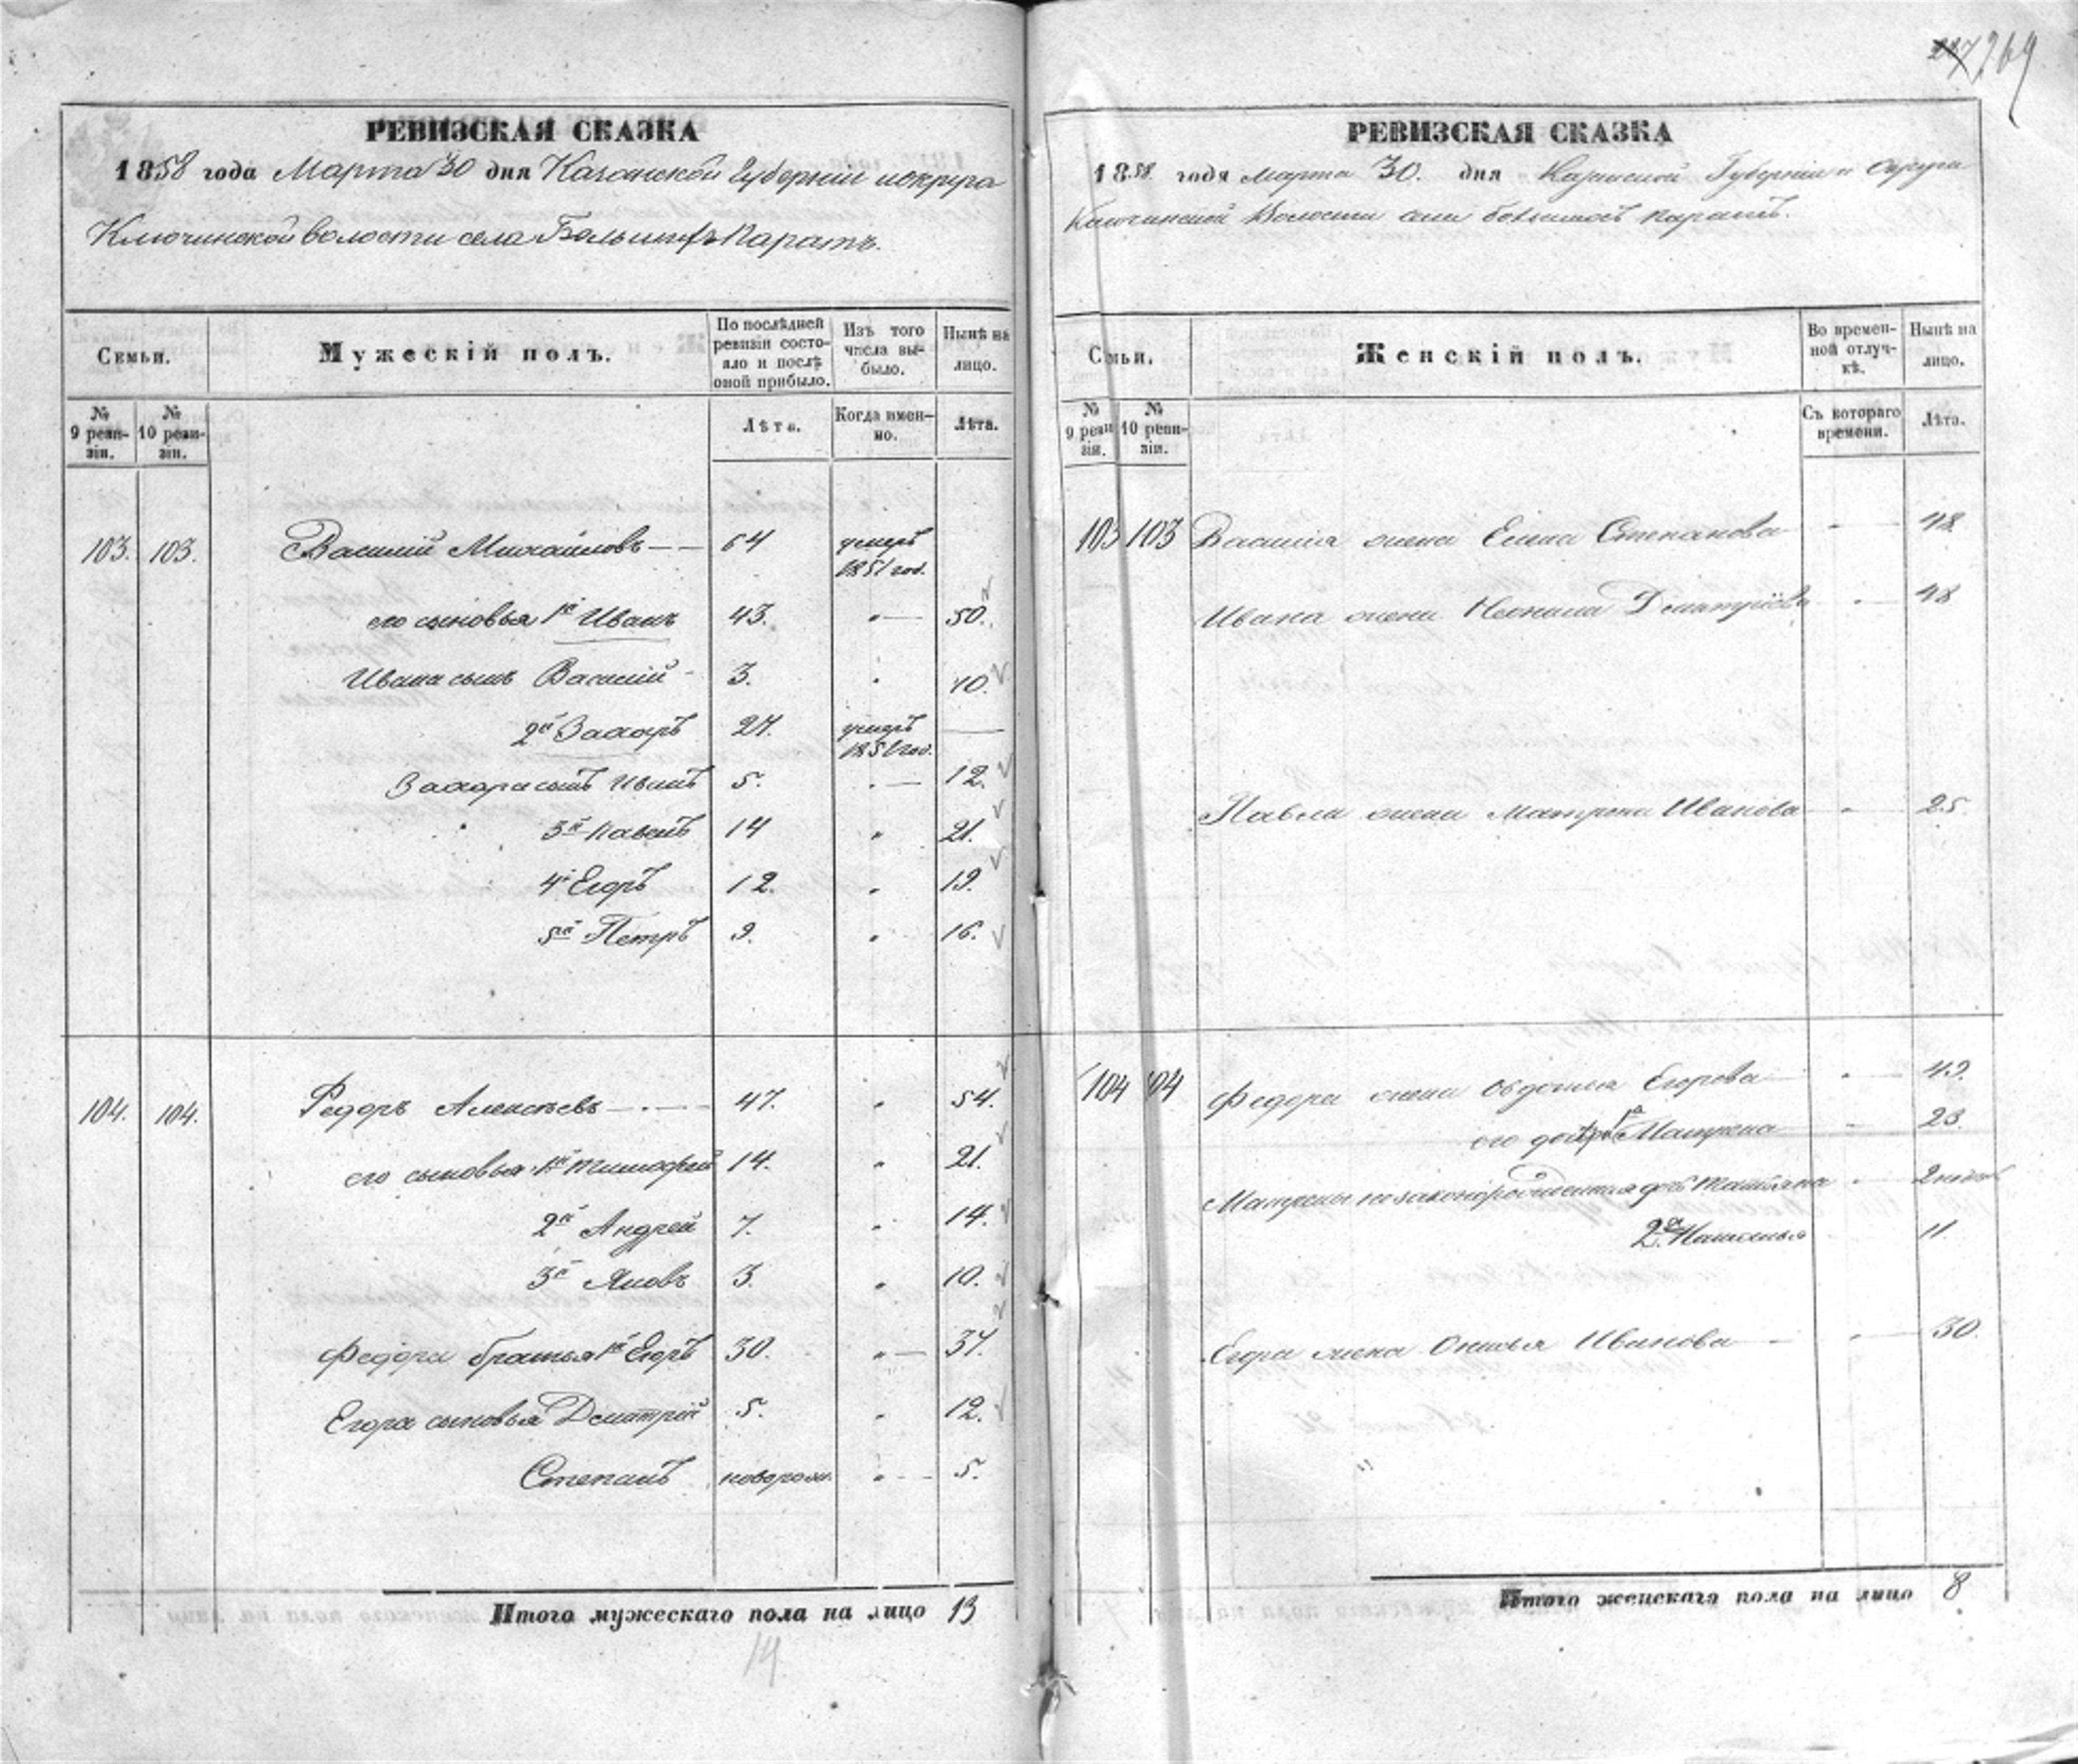 269
РЕВИЗСКАЯ СКАЗКА
1858 года Марта 30 дня Казанской Губернии и округа
Ключинской волости села Большихъ Каратъ.
Семьи.
Мужескій полъ.
По послѣдней ревизіи состояло и послѣ оной прибыло.
Изъ того числа выбыло.
Нынѣ на лицо.
№ 9 ревизіи.
№ 10 ревизіи.
Лѣта.
Когда именно.
Лѣта.
103. 103. Василий Михайловъ 64 умеръ 1851 год.
его сыновья 1й Иванъ 43. " 50.
Ивана сынъ Василій 3. " 10.
2й Захаръ 27. умеръ 1851 год.
Захара сынъ Иванъ 5. " 12.
3й Павелъ 14 " 21.
4й Егоръ 12. " 19.
5й Петръ 9. " 16.
104. 104. Федоръ Алексѣевъ 47. " 54.
его сыновья 1й Тимофей 14. " 21.
2й Андрей 7. " 14.
3й Яковъ 3. " 10.
Федора братья 1й Егоръ 30. " 37.
Егора сыновья Дмитрій 5. " 12.
Степанъ оворож. " 5.
Итого мужескаго пола на лицо 13
14
РЕВИЗСКАЯ СКАЗКА
1858 года Марта 30. дня Казанской Губернии и Округа
Ключинской Волости села Большихъ Каратъ.
Семьи.
Женскій полъ.
Во временной отлучкѣ.
Нынѣ на лицо.
№ 9 ревизіи.
№ 10 ревизіи.
Съ котораго времени.
Лѣта.
103 103 Василия жена Елена Степанова " 48.
Ивана жена Неонила Дмитриева " 48
Павла жена Матрена Иванова " 25.
104 104 Федора жена Овдотья Егорова " 49.
его дочери 1я Матрена " 23.
Матрены незаконорожденная дочь Татьяна " 2
2я Наталья 11
Егора жена Иванова " 30.
Итого женскаго пола на лицо 8